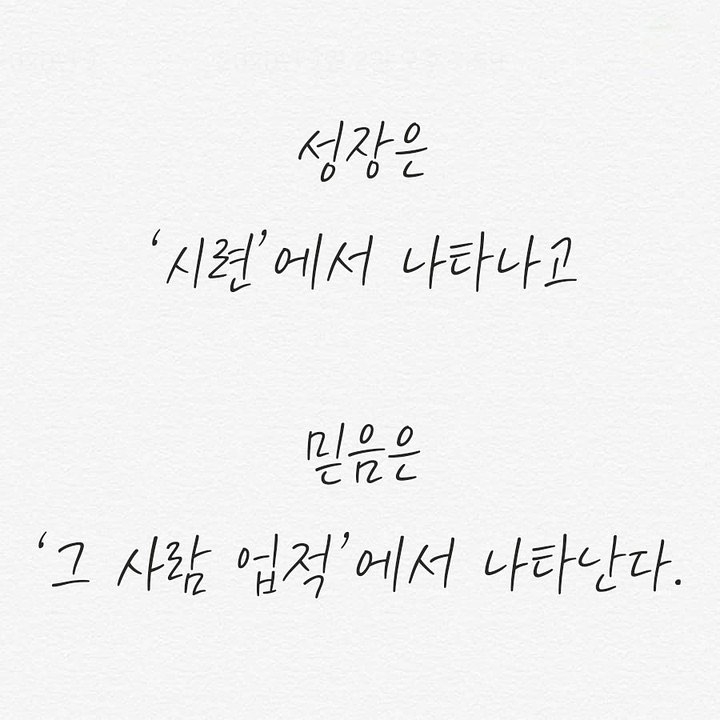 성장은
‘시련’에서 나타나고
믿음은
‘그 사람 업적’에서 나타난다.